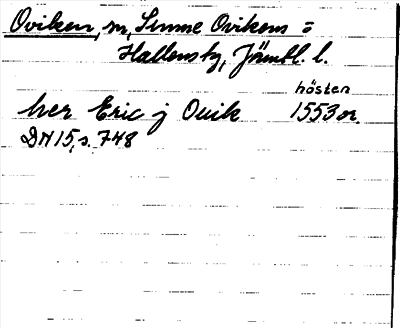 Oviken, sn, Sunne Ovikens o
Hallens tg, Jämtl. l.
hösten
her Eric j Ouik 1553 or.
DN 15, s. 748